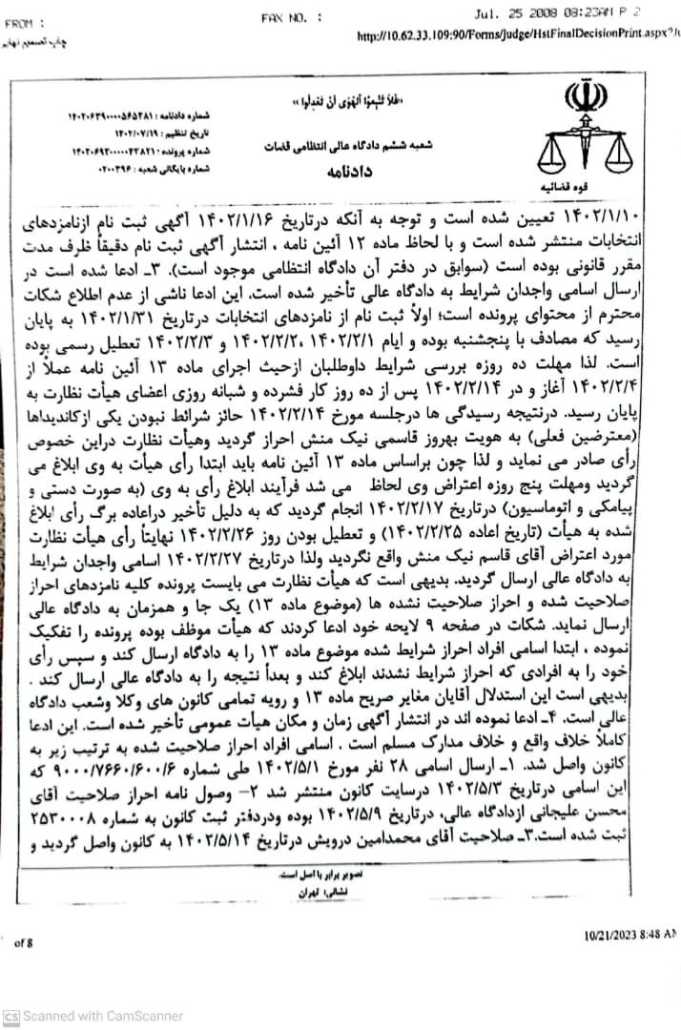 FROM :
FAX NO. :
Jul. 25 2008 08:23AM P 2
چاپ تصمیم نهایی
http://10.62.33.109:90/Forms/Judge/HstFinalDecisionPrint.aspx?
«فلا تتبعوا الهوی ان تعدلوا»
شماره دادنامه : ۱۴۰۲۰۶۳۹۰۰۰۰۵۶۵۲۸۱
تاریخ تنظیم : ۱۴۰۲/۰۷/۱۹
شماره پرونده : ۱۴۰۲۰۶۹۲۰۰۰۰۰۴۳۸۲۱
شماره بایگانی شعبه : ۰۲۰۰۳۹۶
شعبه ششم دادگاه عالی انتظامی قضات
دادنامه
قوه قضائیه
۱۴۰۲/۱/۱۰ تعیین شده است و توجه به آنکه درتاریخ ۱۴۰۲/۱/۱۶ آگهی ثبت نام ازنامزدهای
انتخابات منتشر شده است و با لحاظ ماده ۱۲ آئین نامه ، انتشار آگهی ثبت نام دقیقاً ظرف مدت
مقرر قانونی بوده است (سوابق در دفتر آن دادگاه انتظامی موجود است). ۳ـ ادعا شده است در
ارسال اسامی واجدان شرایط به دادگاه عالی تأخیر شده است. این ادعا ناشی از عدم اطلاع شکات
محترم از محتوای پرونده است؛ اولاً ثبت نام از نامزدهای انتخابات درتاریخ ۱۴۰۲/۱/۳۱ به پایان
رسید که مصادف با پنجشنبه بوده و ایام ۱۴۰۲/۲/۱ ،۱۴۰۲/۲/۲ و ۱۴۰۲/۲/۳ تعطیل رسمی بوده
است. لذا مهلت ده روزه بررسی شرایط داوطلبان ازحیث اجرای ماده ۱۳ آئین نامه عملاً از
۱۴۰۲/۲/۴ آغاز و در ۱۴۰۲/۲/۱۴ پس از ده روز کار فشرده و شبانه روزی اعضای هیأت نظارت به
پایان رسید. درنتیجه رسیدگی ها درجلسه مورخ ۱۴۰۲/۲/۱۴ حائز شرائط نبودن یکی ازکاندیداها
(معترضین فعلی) به هویت بهروز قاسمی نیک منش احراز گردید وهیأت نظارت دراین خصوص
رأی صادر می نماید و لذا چون براساس ماده ۱۳ آئین نامه باید ابتدا رأی هیأت به وی ابلاغ می
گردید ومهلت پنج روزه اعتراض وی لحاظ می شد فرآیند ابلاغ رأی به وی (به صورت دستی و
پیامکی و اتوماسیون) درتاریخ ۱۴۰۲/۲/۱۷ انجام گردید که به دلیل تأخیر دراعاده برگ رأی ابلاغ
شده به هیأت (تاریخ اعاده ۱۴۰۲/۲/۲۵) و تعطیل بودن روز ۱۴۰۲/۲/۲۶ نهایتاً رأی هیأت نظارت
مورد اعتراض آقای قاسم نیک منش واقع نگردید ولذا درتاریخ ۱۴۰۲/۲/۲۷ اسامی واجدان شرایط
به دادگاه عالی ارسال گردید. بدیهی است که هیأت نظارت می بایست پرونده کلیه نامزدهای احراز
صلاحیت شده و احراز صلاحیت نشده ها (موضوع ماده ۱۳) یک جا و همزمان به دادگاه عالی
ارسال نماید. شکات در صفحه ۹ لایحه خود ادعا کردند که هیأت موظف بوده پرونده را تفکیک
نموده ، ابتدا اسامی افراد احراز شرایط شده موضوع ماده ۱۳ را به دادگاه ارسال کند و سپس رأی
خود را به افرادی که احراز شرایط نشدند ابلاغ کند و بعداً نتیجه را به دادگاه عالی ارسال کند .
بدیهی است این استدلال آقایان مغایر صریح ماده ۱۳ و رویه تمامی کانون های وکلا وشعب دادگاه
عالی است. ۴ـ ادعا نموده اند در انتشار آگهی زمان و مکان هیأت عمومی تأخیر شده است. این ادعا
کاملاً خلاف واقع و خلاف مدارک مسلم است . اسامی افراد احراز صلاحیت شده به ترتیب زیر به
کانون واصل شد. ۱ـ ارسال اسامی ۲۸ نفر مورخ ۱۴۰۲/۵/۱ طی شماره ۹۰۰۰/۷۶۶۰/۶۰۰/۶ که
این اسامی درتاریخ ۱۴۰۲/۵/۳ درسایت کانون منتشر شد ۲- وصول نامه احراز صلاحیت آقای
محسن علیجانی ازدادگاه عالی، درتاریخ ۱۴۰۲/۵/۹ بوده ودردفتر ثبت کانون به شماره ۲۵۳۰۰۰۸
ثبت شده است.۳ـ صلاحیت آقای محمدامین درویش درتاریخ ۱۴۰۲/۵/۱۴ به کانون واصل گردید و
تصویر برابر با اصل است.
نشانی: تهران
of 8
10/21/2023 8:48 AM
CS Scanned with CamScanner